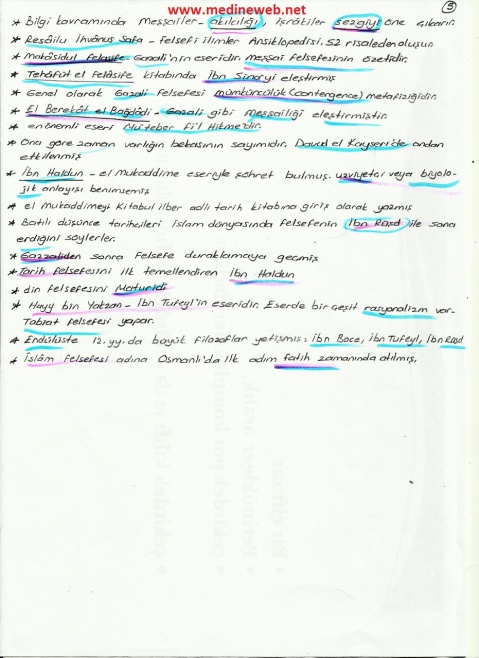 www.medineweb.net
3
* Bilgi kavramında Meşşailer - akılcılığı, işrakiler sezgiyi öne çıkarır.
* Resâilu İhvânus Safa - Felsefi ilimler Ansiklopedisi, 52 risaleden oluşur
* Makâsidul Felasife Gazali'nin eseridir. Meşşai felsefesinin özetidir.
* Tehâfüt el Felâsife kitabında İbn Sina'yı eleştirmiş
* Genel olarak Gazali Felsefesi mümbürcülük (contergence) metafiziğidir.
* El Berekât el Bağdâdi - Gazali gibi Meşşailiği eleştirmiştir.
* en önemli eseri Mu'teber fi'l Hikme'dir.
* Ona göre zaman varlığın bekasının sayımıdır. Davud el Kayseri'de ondan
etkilenmiş
* İbn Haldun - el mukaddime eseriyle şöhret bulmuş. uzviyetçi veya biyolo-
jik anlayışı benimsemiş
* el mukaddimeyi Kitabul ilber adlı tarih kitabına giriş olarak yazmış
* Batılı düşünce tarihçileri islam dünyasında felsefenin İbn Rüşd ile sona
erdiğini söylerler.
* Gazzaliden sonra Felsefe duraklamaya geçmiş
* Tarih felsefesini ilk temellendiren ibn Haldun
* din felsefesini Maturidi
* Hayy bin Yakzan - İbn Tufeyl'in eseridir. Eserde bir çeşit rasyonalizm var-
Tabiat felsefesi yapar.
* Endülüste 12.yy.da büyük filozoflar yetişmiş: ibn Bace, ibn Tufeyl, ibn Rüşd
* islâm felsefesi adına Osmanlı'da ilk adım fatih zamanında atılmış.